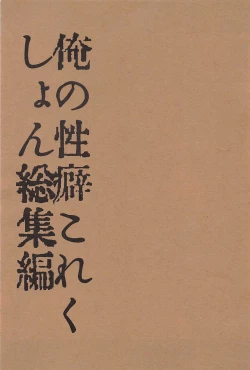 俺の性癖これく
しょん総集編